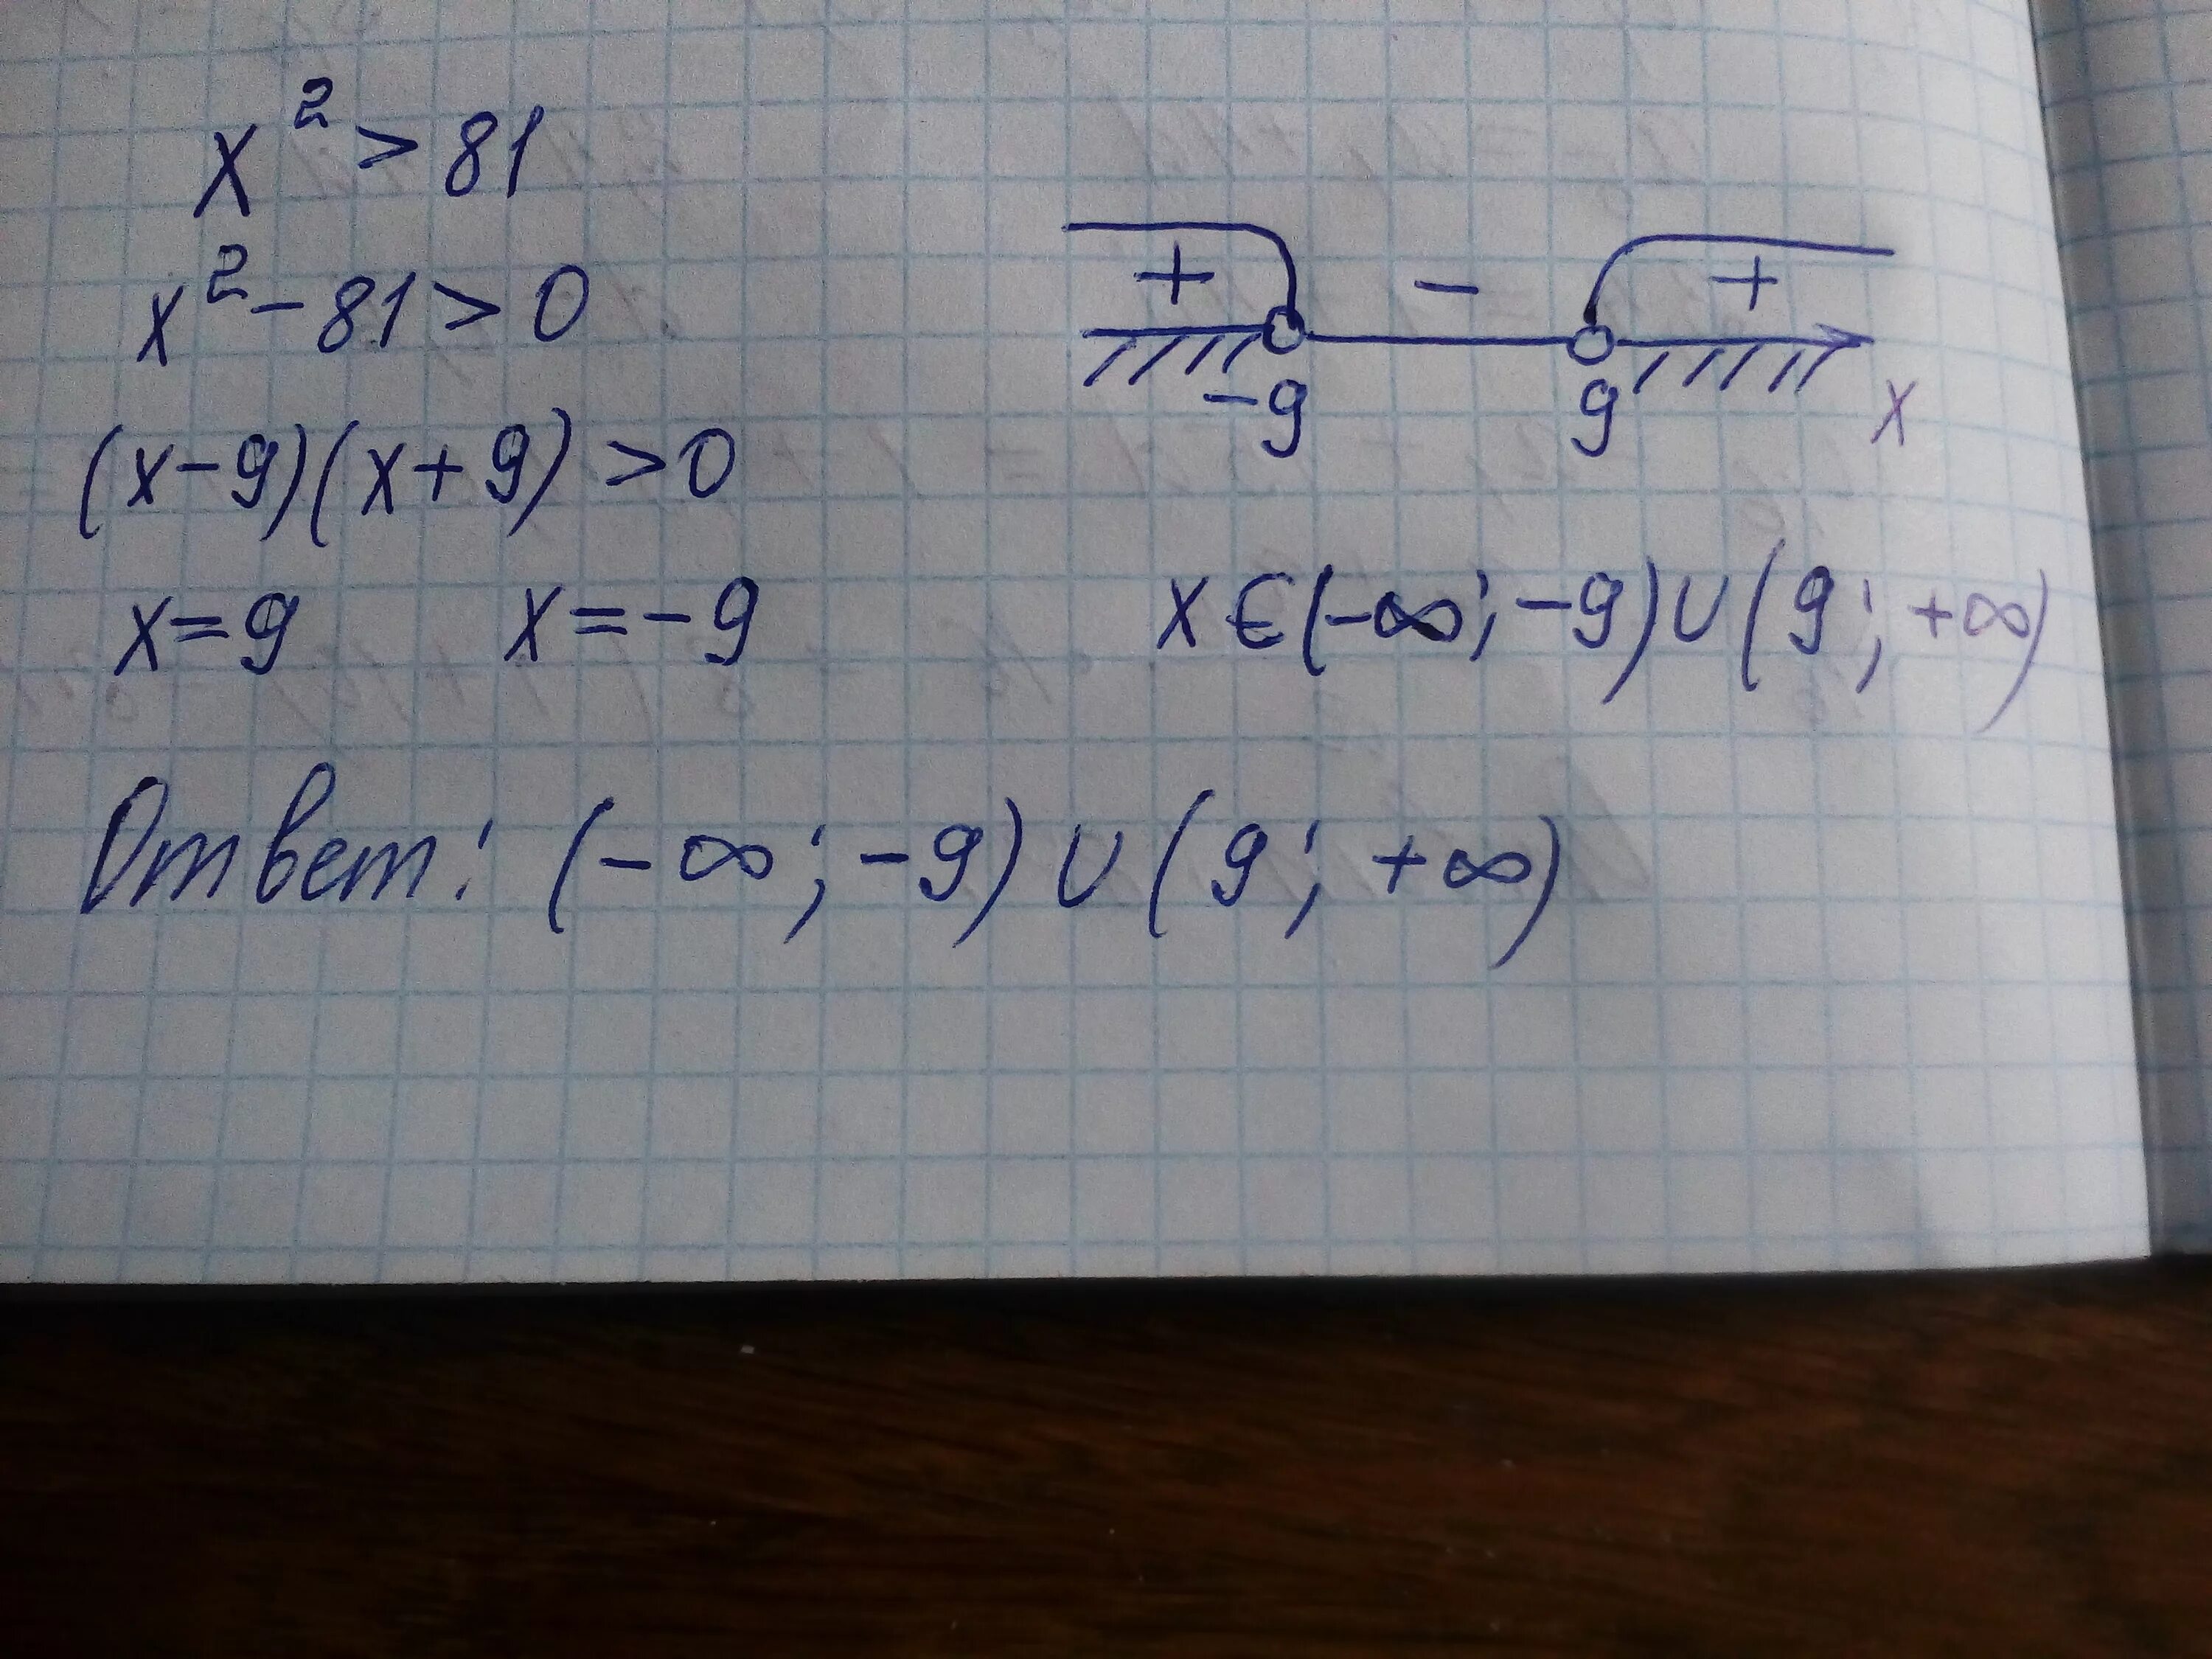 x² > 81
x² - 81 > 0
(x - 9)(x + 9) > 0
x = 9 x = -9
+ - +
-9 9 x
x ∈ (-∞; -9) ∪ (9; +∞)
Ответ: (-∞; -9) ∪ (9; +∞)